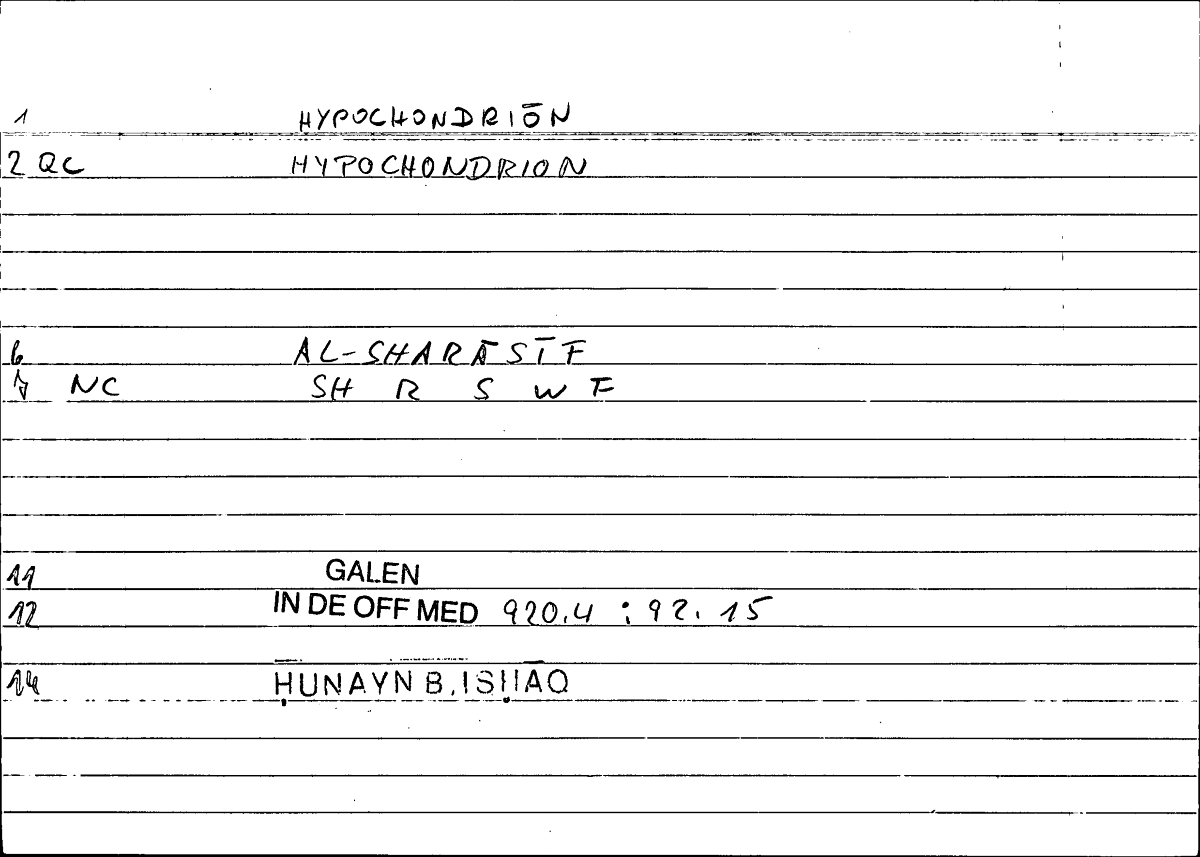 1 HYPOCHONDRIŌN
2 QC HYPOCHONDRION
6 AL-SHARĀSĪF
7 NC SH R S W F
11 GALEN
12 IN DE OFF MED 920.4 : 92.15
14 ḤUNAYN B. ISḤĀQ